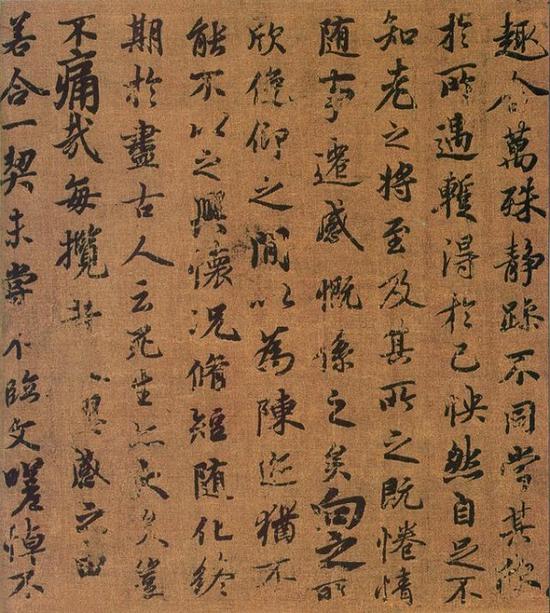 趣舍萬殊静躁不同當其欣
於所遇暫得於己怏然自足不
知老之將至及其所之既惓情
随事遷感慨係之矣向之所
欣俛仰之間以為陳迹猶不
能不以之興懷況脩短随化終
期於盡古人云死生亦大矣豈
不痛哉每攬昔人興感之由
若合一契未嘗不臨文嗟悼不